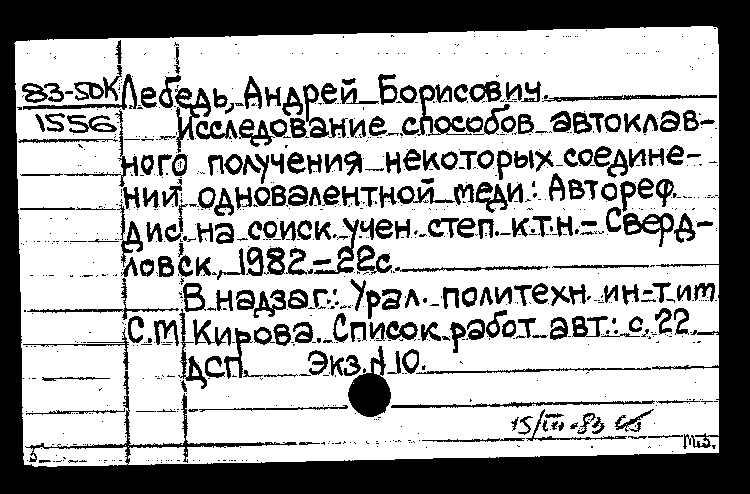 83-50К Лебедь, Андрей Борисович.
1556 Исследование способов автоклав-
ного получения некоторых соедине-
ний одновалентной меди: Автореф.
дис. на соиск. учен. степ. к.т.н.– Сверд-
ловск, 1982.–22с.
В надзаг.: Урал. политехн. ин-т им.
С.М. Кирова. Список работ авт.: с.22.
ДСП. Экз. N 10.
15/III-83